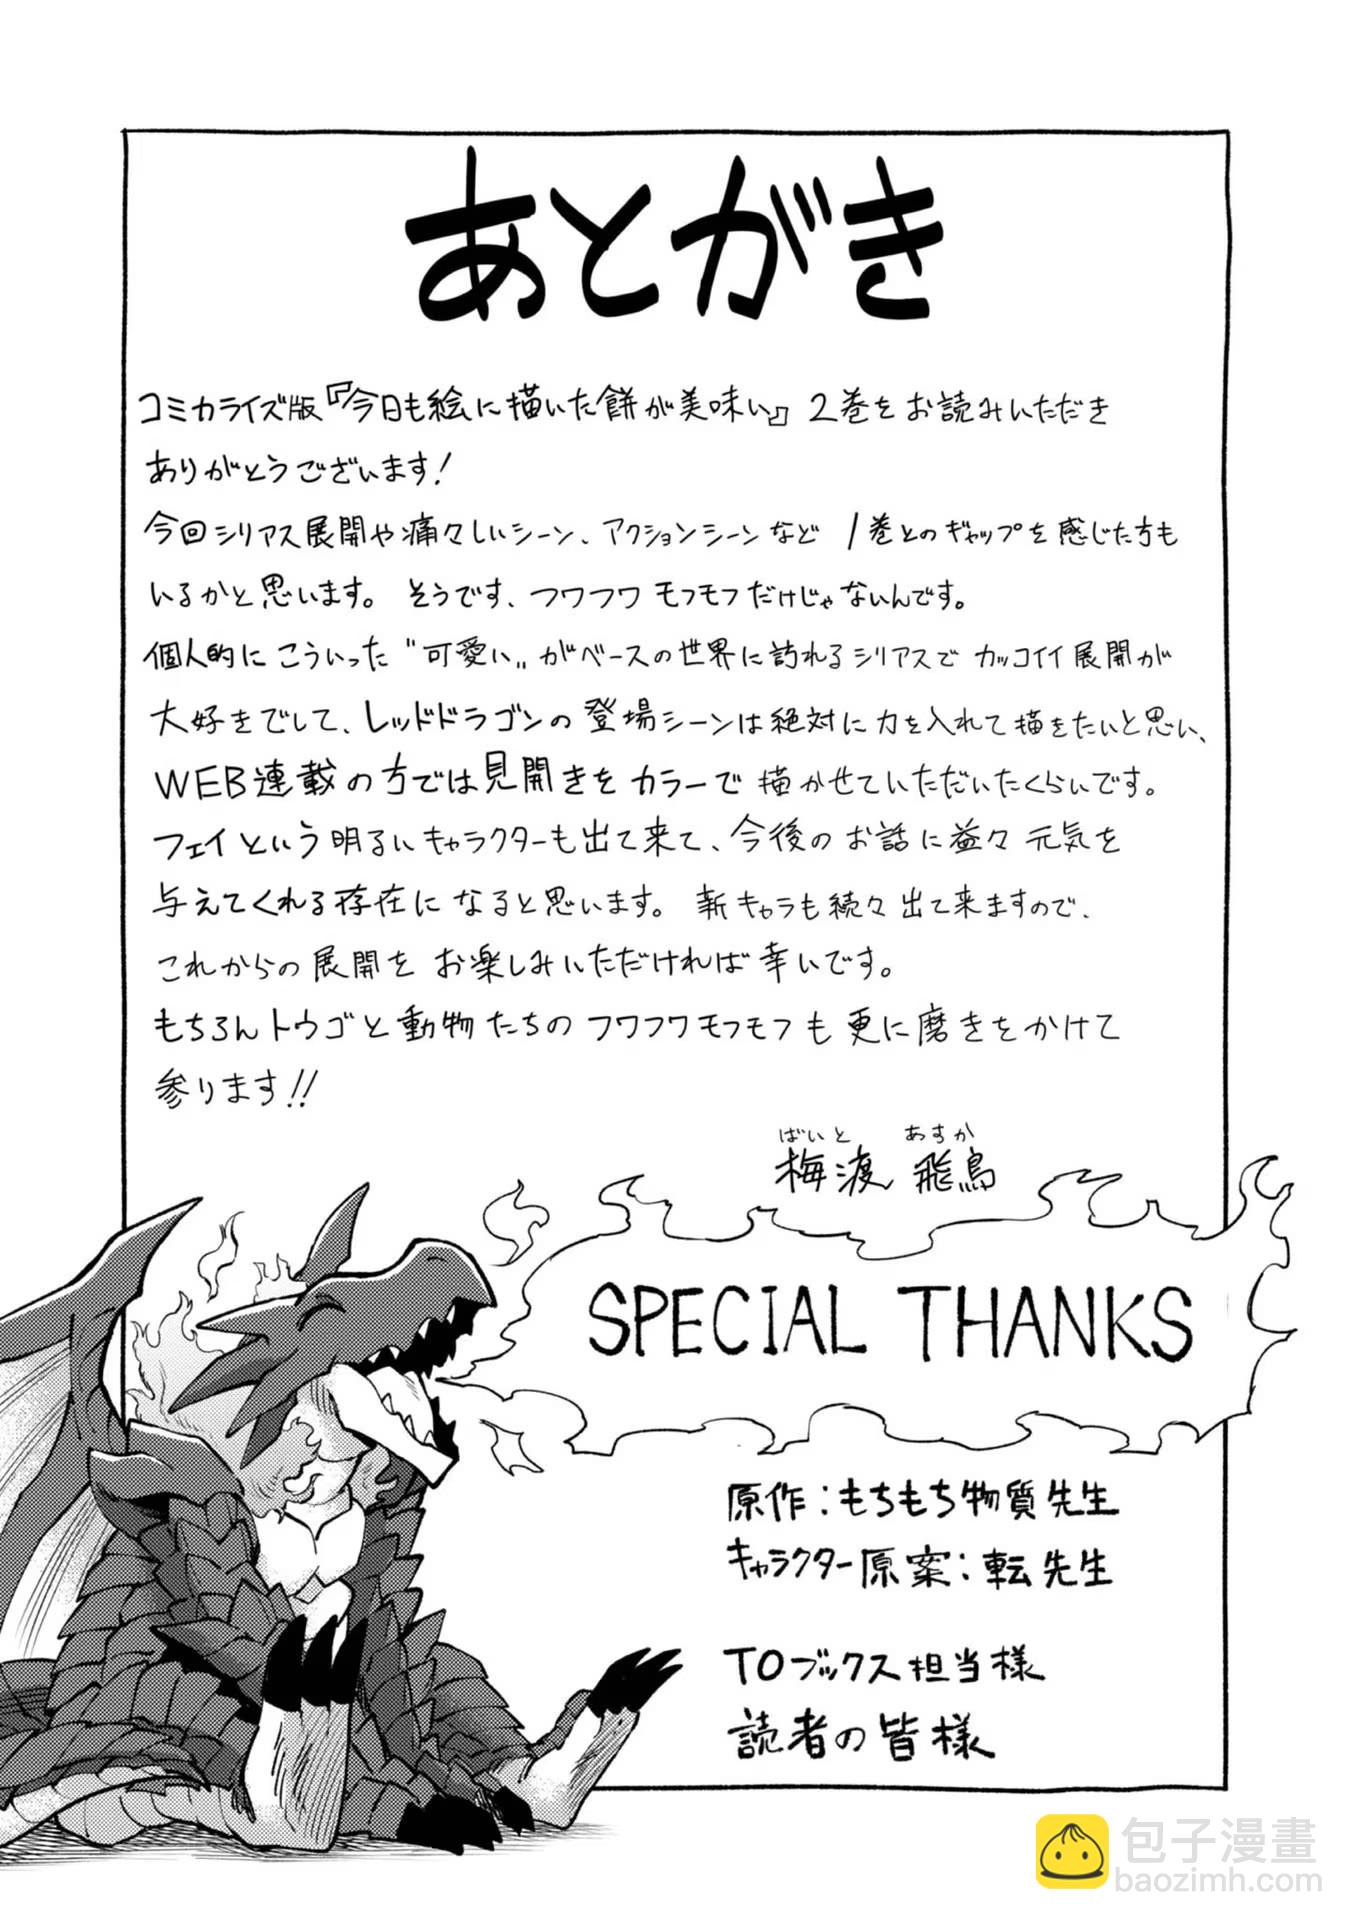 あとがき
コミカライズ版『今日も絵に描いた餅が美味い』2巻をお読みいただき
ありがとうございます!
今回シリアス展開や痛々しいシーン、アクションシーンなど 1巻とのギャップを感じた方も
いるかと思います。そうです、フワフワモフモフだけじゃないんです。
個人的にこういった〝可愛い〟がベースの世界に訪れるシリアスでカッコイイ展開が
大好きでして、レッドドラゴンの登場シーンは絶対に力を入れて描きたいと思い、
WEB連載の方では見開きをカラーで描かせていただいたくらいです。
フェイという明るいキャラクターも出て来て、今後のお話に益々元気を
与えてくれる存在になると思います。新キャラも続々出て来ますので、
これからの展開をお楽しみいただければ幸いです。
もちろんトウゴと動物たちのフワフワモフモフも更に磨きをかけて
参ります!!
ばいと あすか
梅渡 飛鳥
SPECIAL THANKS
原作:もちもち物質先生
キャラクター原案:転先生
TOブックス担当様
読者の皆様
包子漫畫
baozimh.com